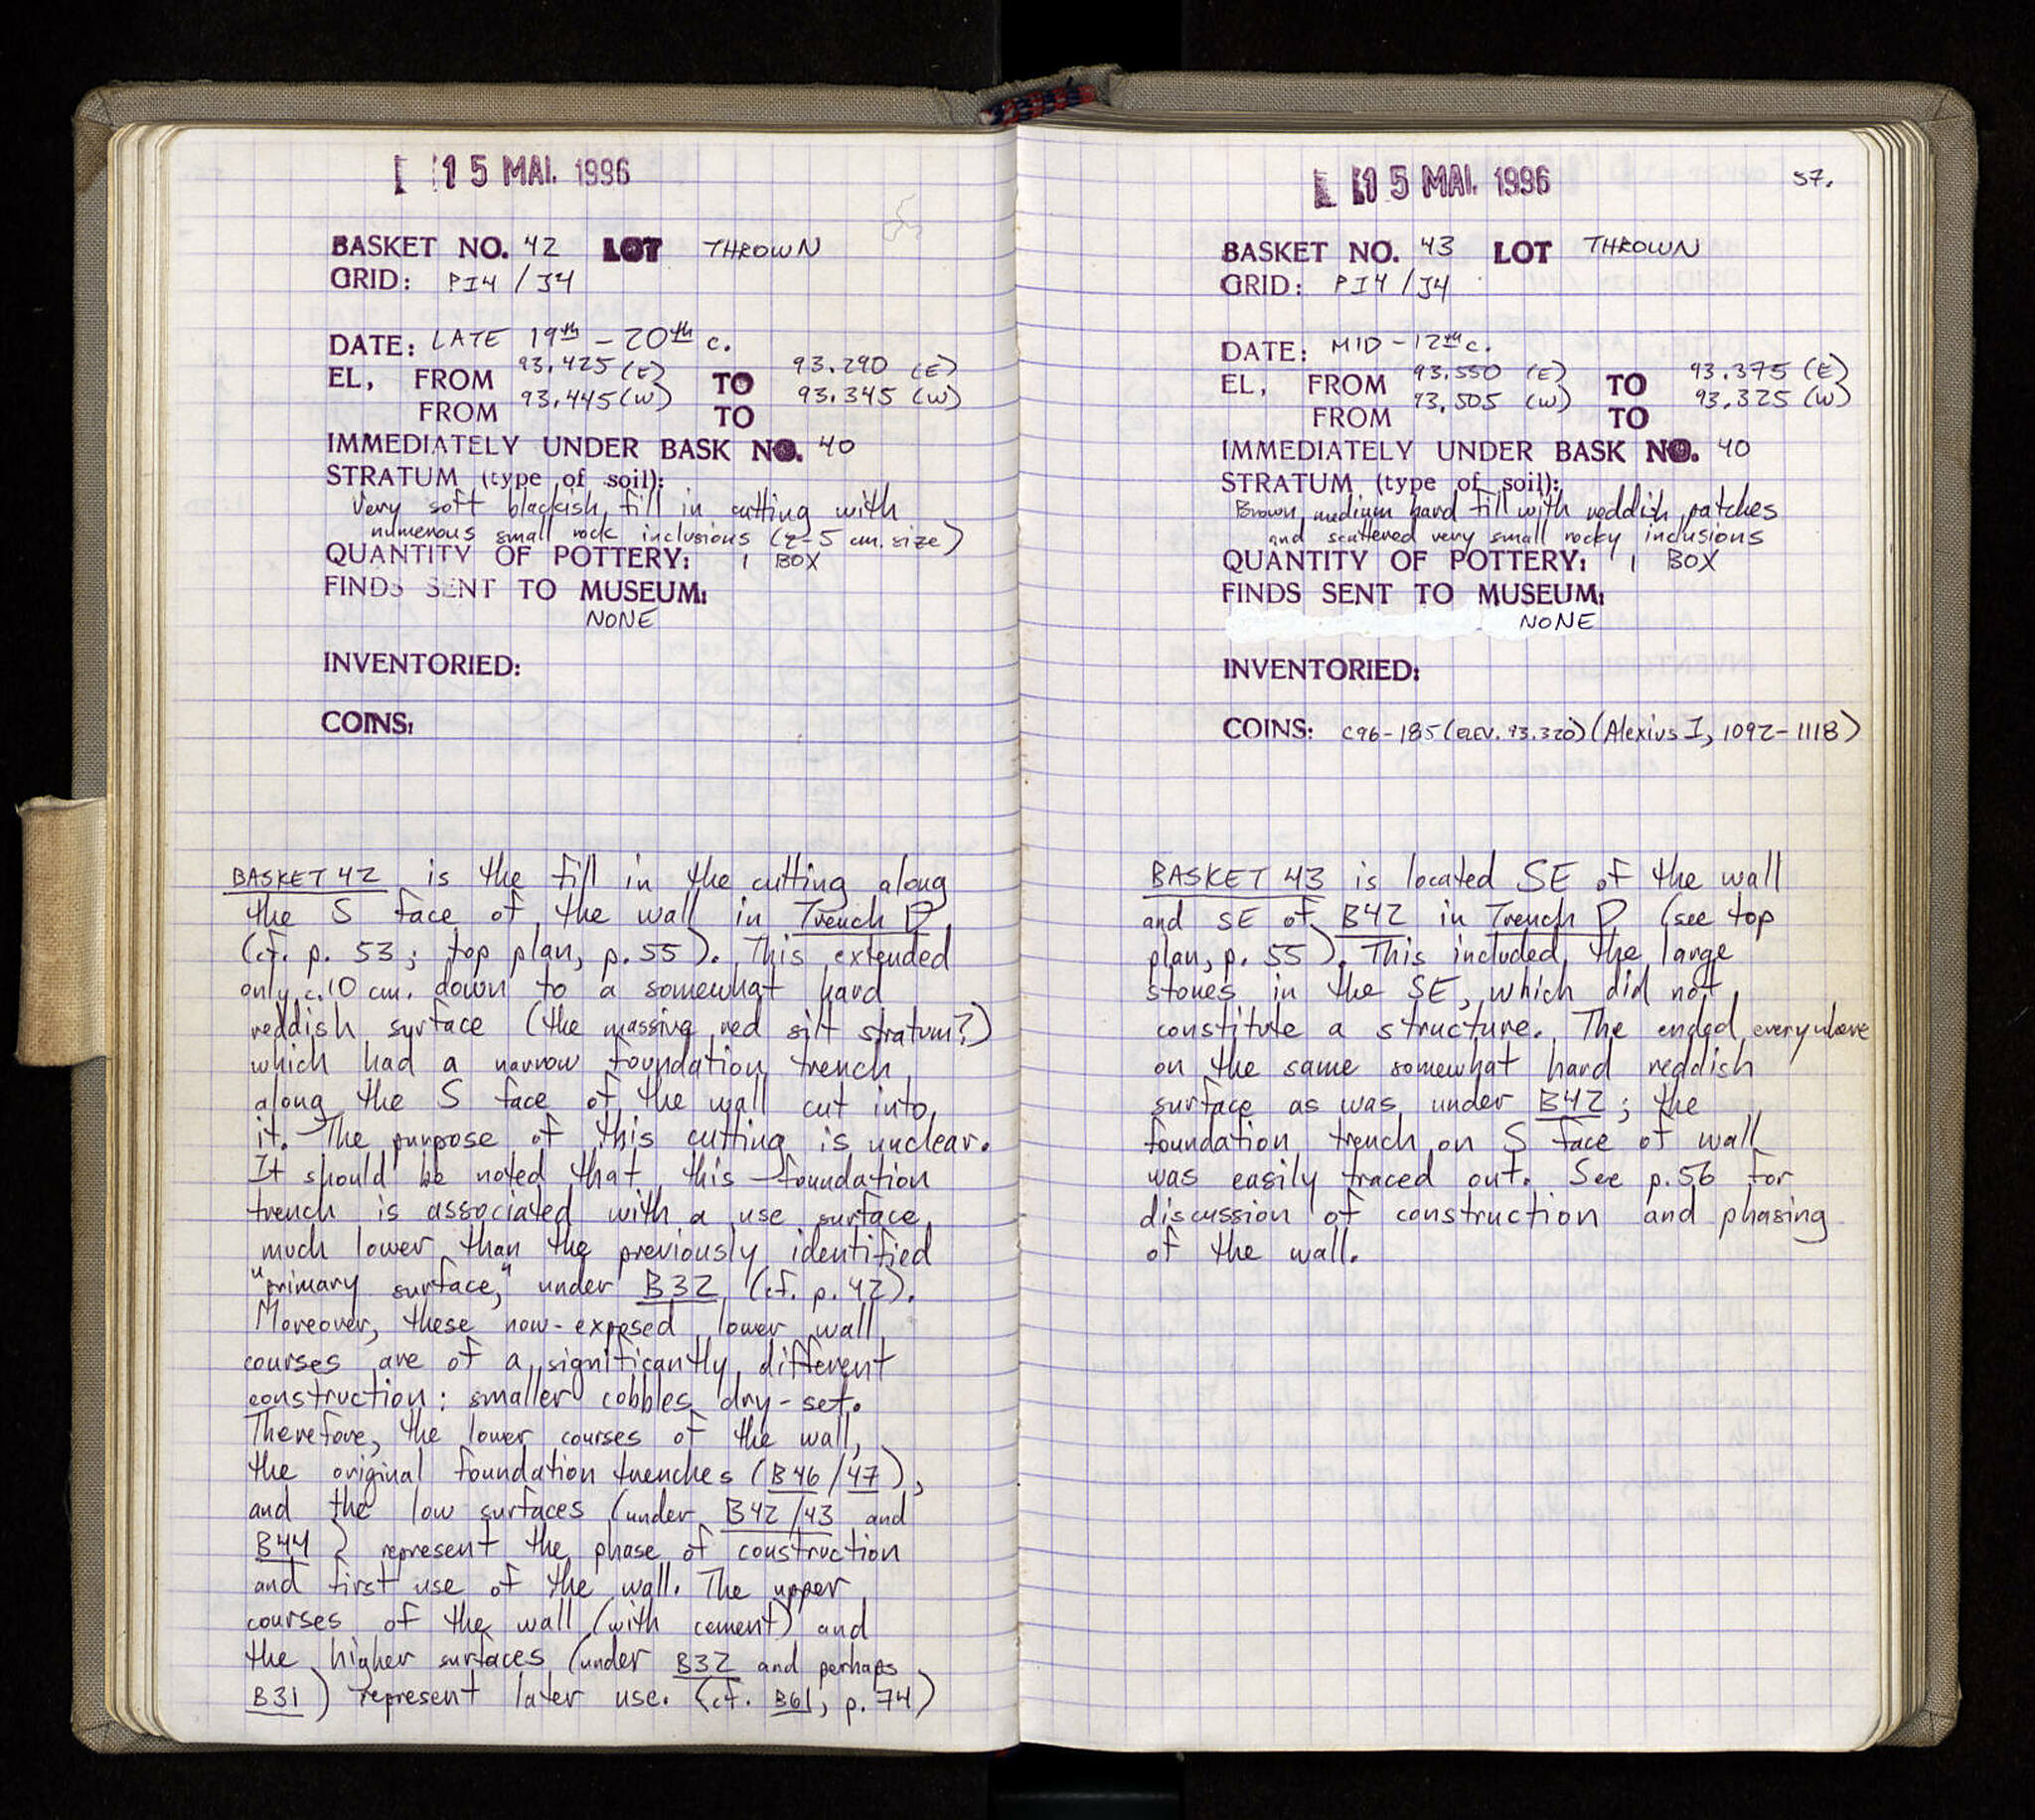 15 MAI. 1996
BASKET NO. 42 LOT THROWN
GRID: PI4 / J4
DATE: LATE 19th - 20th c.
EL, FROM 93.425 (E) TO 93.290 (E)
FROM 93.445 (W) TO 93.345 (W)
IMMEDIATELY UNDER BASK NO. 40
STRATUM (type of soil):
Very soft blackish fill in cutting with
numerous small rock inclusions (2-5 cm. size)
QUANTITY OF POTTERY: 1 BOX
FINDS SENT TO MUSEUM:
NONE
INVENTORIED:
COINS:
BASKET 42 is the fill in the cutting along
the S face of the wall in Trench D
(cf. p. 53; top plan, p. 55). This extended
only c. 10 cm. down to a somewhat hard
reddish surface (the massive red silt stratum?)
which had a narrow foundation trench
along the S face of the wall cut into
it. The purpose of this cutting is unclear.
It should be noted that this foundation
trench is associated with a use surface
much lower than the previously identified
"primary surface," under B32 (cf. p. 42).
Moreover, these now-exposed lower wall
courses are of a significantly different
construction: smaller cobbles dry-set.
Therefore, the lower courses of the wall,
the original foundation trenches (B46/47),
and the low surfaces (under B42/43 and
B44) represent the phase of construction
and first use of the wall. The upper
courses of the wall (with cement) and
the higher surfaces (under B32 and perhaps
B31) represent later use. (cf. B61, p. 74)
15 MAI. 1996
57.
BASKET NO. 43 LOT THROWN
GRID: PI4 / J4
DATE: MID-12th c.
EL, FROM 93.550 (E) TO 93.375 (E)
FROM 93.505 (W) TO 93.325 (W)
IMMEDIATELY UNDER BASK NO. 40
STRATUM (type of soil):
Brown medium hard fill with reddish patches
and scattered very small rocky inclusions
QUANTITY OF POTTERY: 1 BOX
FINDS SENT TO MUSEUM:
NONE
INVENTORIED:
COINS: C96-185 (ELEV. 93.320) (Alexius I, 1092-1118)
BASKET 43 is located SE of the wall
and SE of B42 in Trench D (see top
plan, p. 55). This included the large
stones in the SE, which did not
constitute a structure. The ended everywhere
on the same somewhat hard reddish
surface as was under B42; the
foundation trench on S face of wall
was easily traced out. See p. 56 for
discussion of construction and phasing
of the wall.